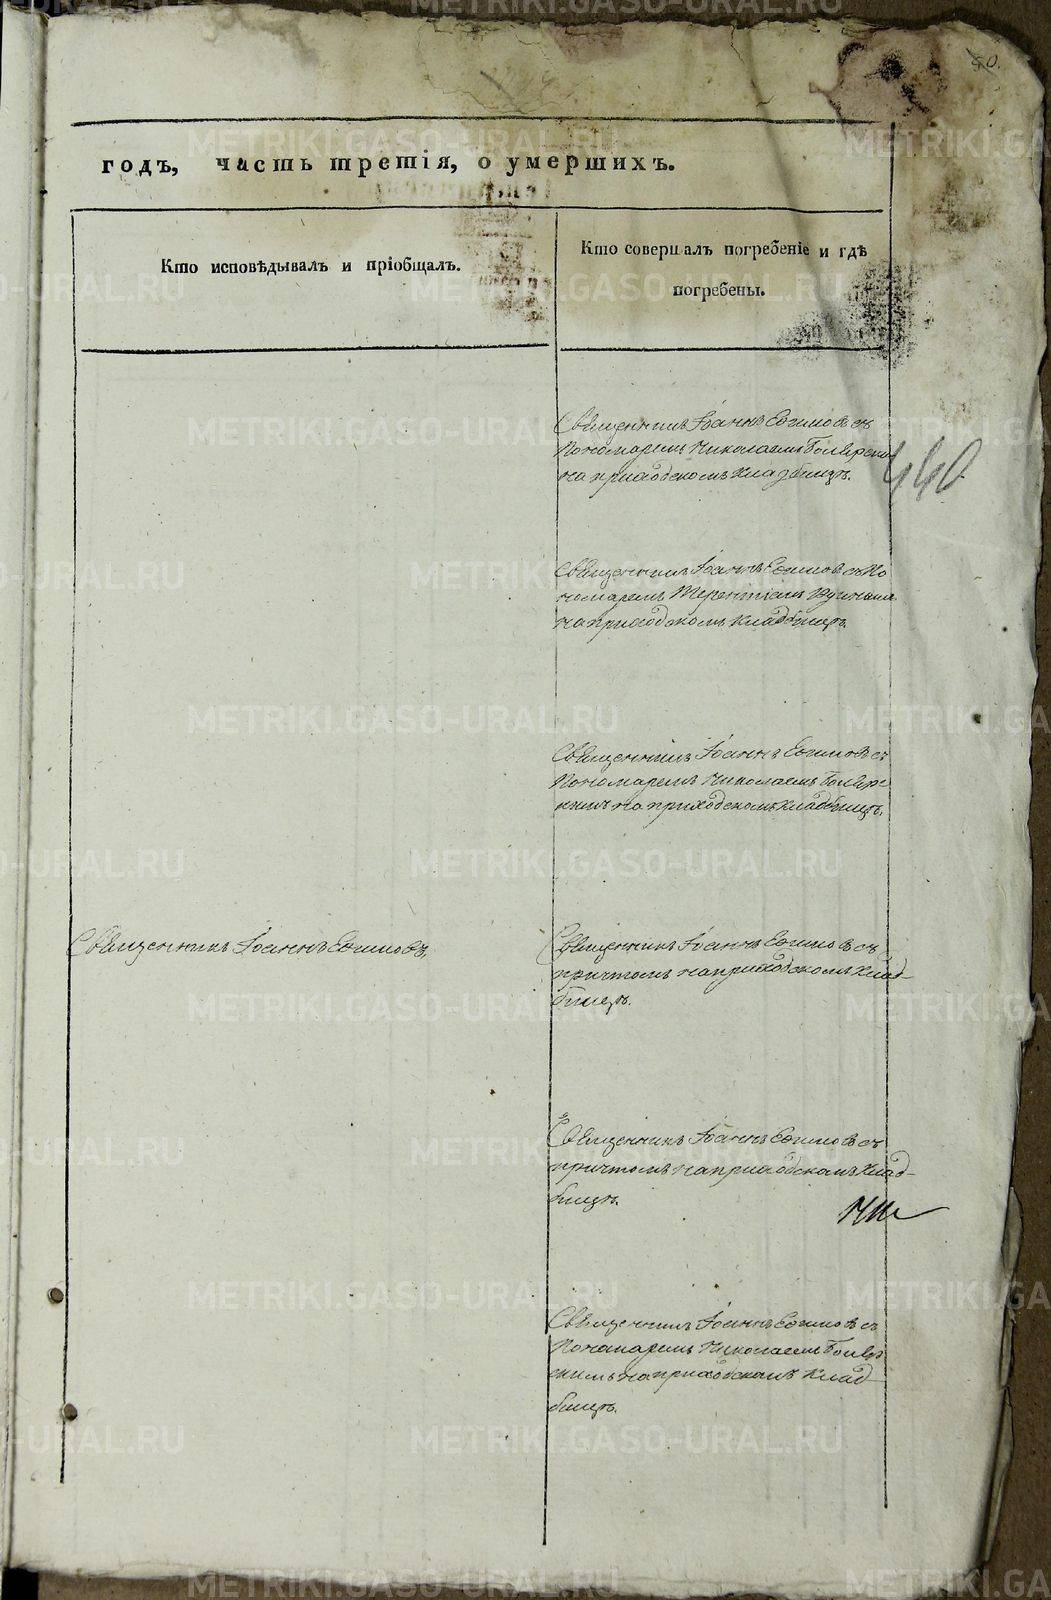 80.
годъ, часть третія, о умершихъ.
Кто исповѣдывалъ и пріобщалъ.
Кто совершалъ погребеніе и гдѣ
погребены.
Священникъ Іоаннъ Ефимовъ съ
Пономаремъ Николаемъ
на приходскомъ кладбищѣ.
440
Священникъ Іоаннъ Ефимовъ съ По
номаремъ Терентіемъ
на приходскомъ кладбищѣ.
Священникъ Іоаннъ Ефимовъ съ
Пономаремъ Николаемъ
кимъ на приходскомъ кладбищѣ.
Священникъ Іоаннъ Ефимовъ.
Священникъ Іоаннъ Ефимовъ съ
причтомъ на приходскомъ клад-
бищѣ.
Священникъ Іоаннъ Ефимовъ съ
причтомъ на приходскомъ клад-
бищѣ.
Священникъ Іоаннъ Ефимовъ съ
Пономаремъ Николаемъ
кимъ на приходскомъ клад-
бищѣ.
METRIKI.GASO-URAL.RU